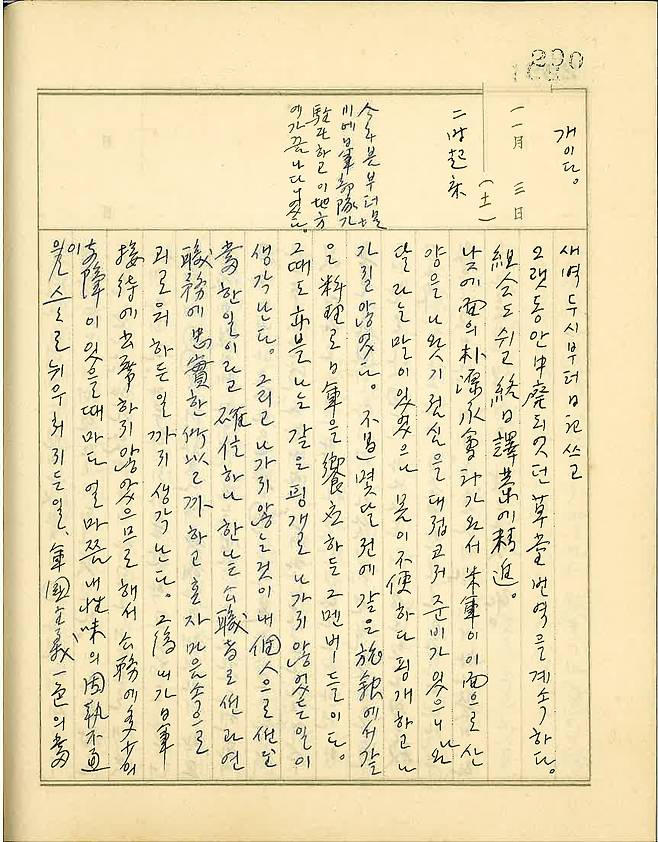 290
개이다。
一一月 三日
(土)
二時起床
今年봄부터
川에日軍部隊가
駐屯하고 이地方
에가끔나다니었다。
새벽두시부터日記쓰고
그랫동안中廢되엿던 草堂번역을 계속하다。
組合도쉬고 終日譯業에精進。
낮에面의朴 와서 米軍이 이面으로산
양을나왓기 점심을 대접코저 준비가 잇으니 나와
달라는 말이 있었으나 몸이 不便하다 핑개하고 나
가질 않었다。 不過 몇달전에 같은 旅館에서 같
은 料理로 日軍을 饗应하든 그 멘버ー들이다。
그때도 나는 같은 핑개로 나가지 않었든 일이
생각난다。 그리고 나가지 않는것이 내 個人으로선 보
當한일이라고 確信하나 한낮 公職者로선 과연
職務에 忠實한 所以일까 하고 혼자 마음속으로
괴로워 하든 일까지 생각난다。 그後 내가 日軍
接待에 出席하지않었으므로 해서 公務에 多少의
支障이 잇을때마다 얼마쯤 내 性味의 固執不通
을 스스로 뉘우처지든 일、軍國主義一色의 當